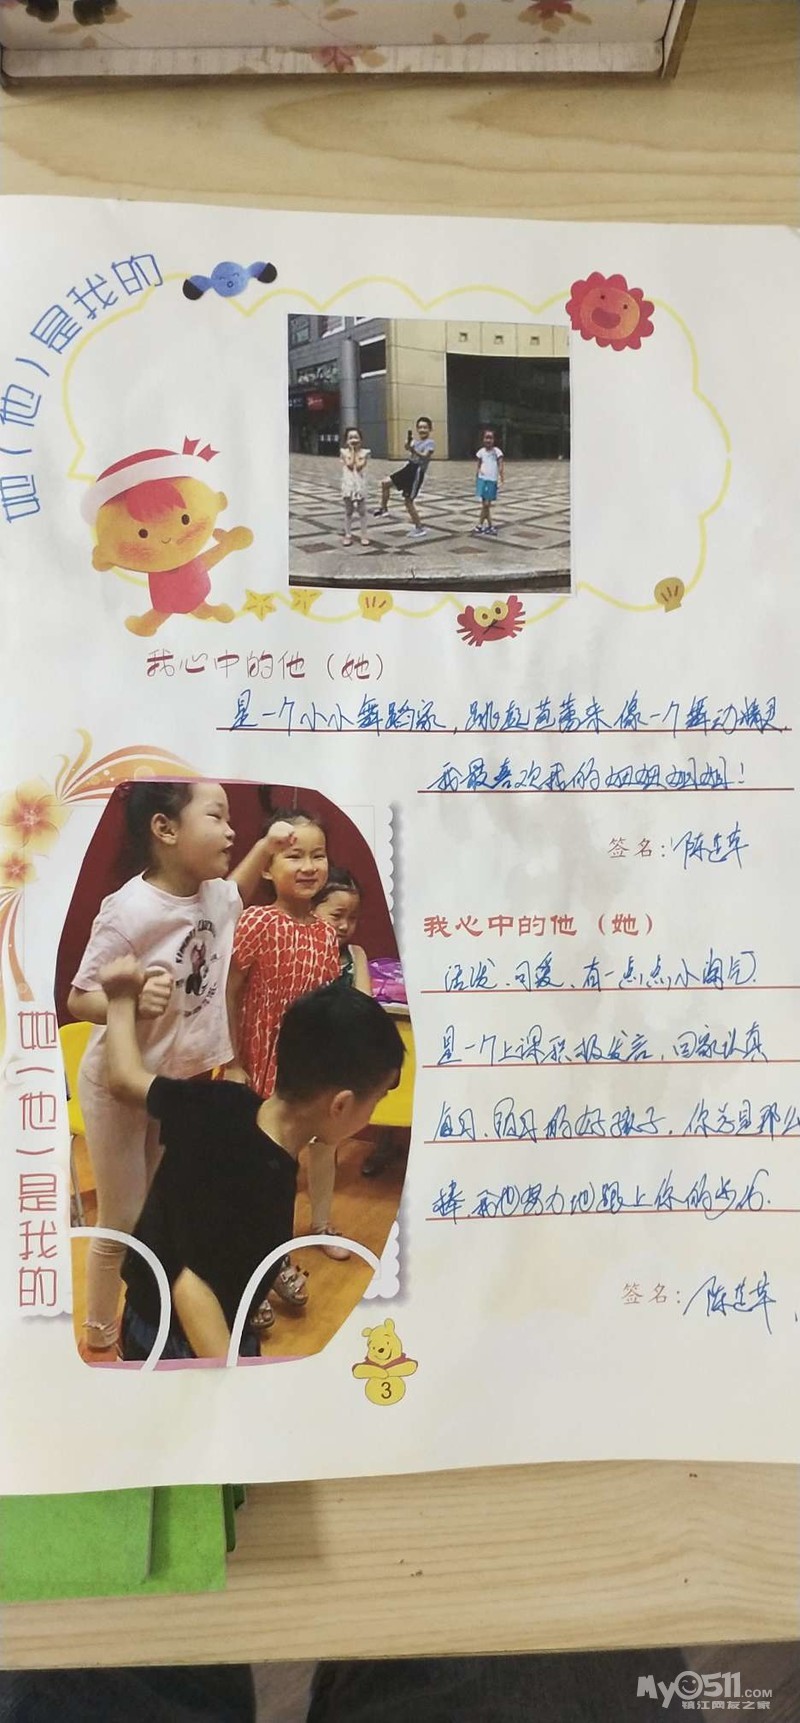 她(他)是我的
我心中的他(她)
是一个小小舞蹈家,跳起芭蕾来像一个舞动精灵,
我最喜欢我的妞妞姐姐!
签名:陈
我心中的他(她)
活泼、可爱、有一点点小淘气.
是一个上课积极发言,回家认真
复习、预习的好孩子,你总是那么
棒,我也努力地跟上你的步伐.
签名:陈
她(他)是我的
3
My0511.COM
镇江网友之家